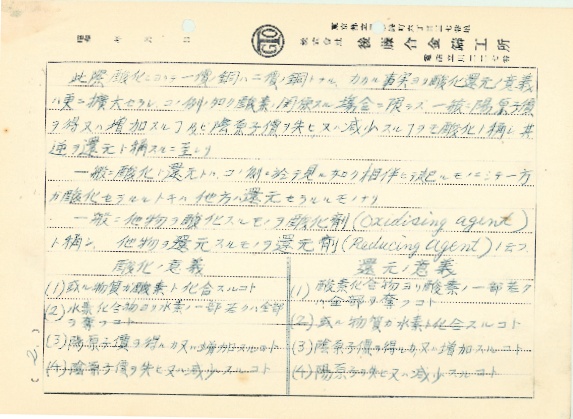 昭和 年 月 日
GTO
東京都
株式会社 後藤合金鋳工所
此際酸化ニヨッテ一價銅ハ二價ノ銅トナル、カカル事実ヨリ酸化還元ノ意義
ハ更ニ擴大セラレ、コノ例ノ如ク酸素ノ関係スル場合ニ限ラズ一般ニ陽原子價
ヲ得又ハ増加スルヿ及ビ陰原子價ヲ失ヒ又ハ減少スルヿヲモ酸化ト稱シ其
逆ヲ還元ト稱スルニ至レリ
一般ニ酸化ト還元トハ、コノ例ニ於テ見ル如ク相伴ニテ起ルモノニシテ一方
ガ酸化セラルルトキハ他方ハ還元セラルルモノナリ
一般ニ他物ヲ酸化スルモノヲ酸化剤(Oxidising agent)
ト稱シ、他物ヲ還元スルモノヲ還元剤(Reducing Agent)ト云フ
酸化ノ意義
(1) 或ル物質ガ酸素ト化合スルコト
(2) 水素化合物ヨリ水素ノ一部若クハ全部
ヲ奪フコト
(3) 陽原子價ヲ得ルカ又ハ増加スルコト
(4) 陰原子價ヲ失ヒ又ハ減少スルコト
還元ノ意義
(1) 酸素化合物ヨリ酸素ノ一部若ク
ハ全部ヲ奪フコト
(2) 或ル物質ガ水素ト化合スルコト
(3) 陰原子價ヲ得ルカ又ハ増加スルコト
(4) 陽原子價ヲ失ヒ又ハ減少スルコト
(2.)